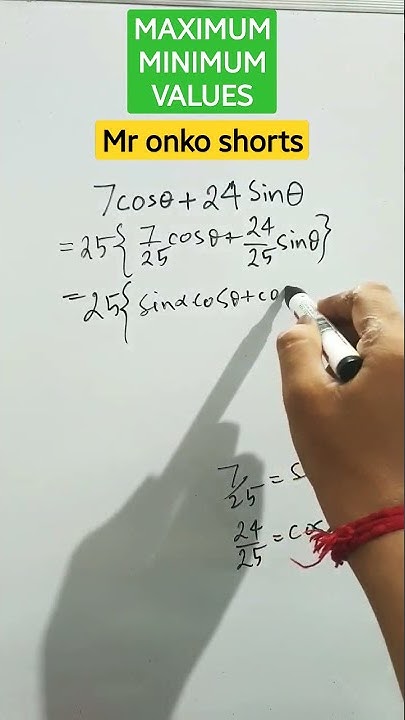 MAXIMUM
MINIMUM
VALUES
Mr onko shorts
7cosθ + 24 sinθ
= 25{ 7/25 cosθ + 24/25 sinθ}
= 25{ sinα cosθ + co
7/25 = s
24/25 = cos